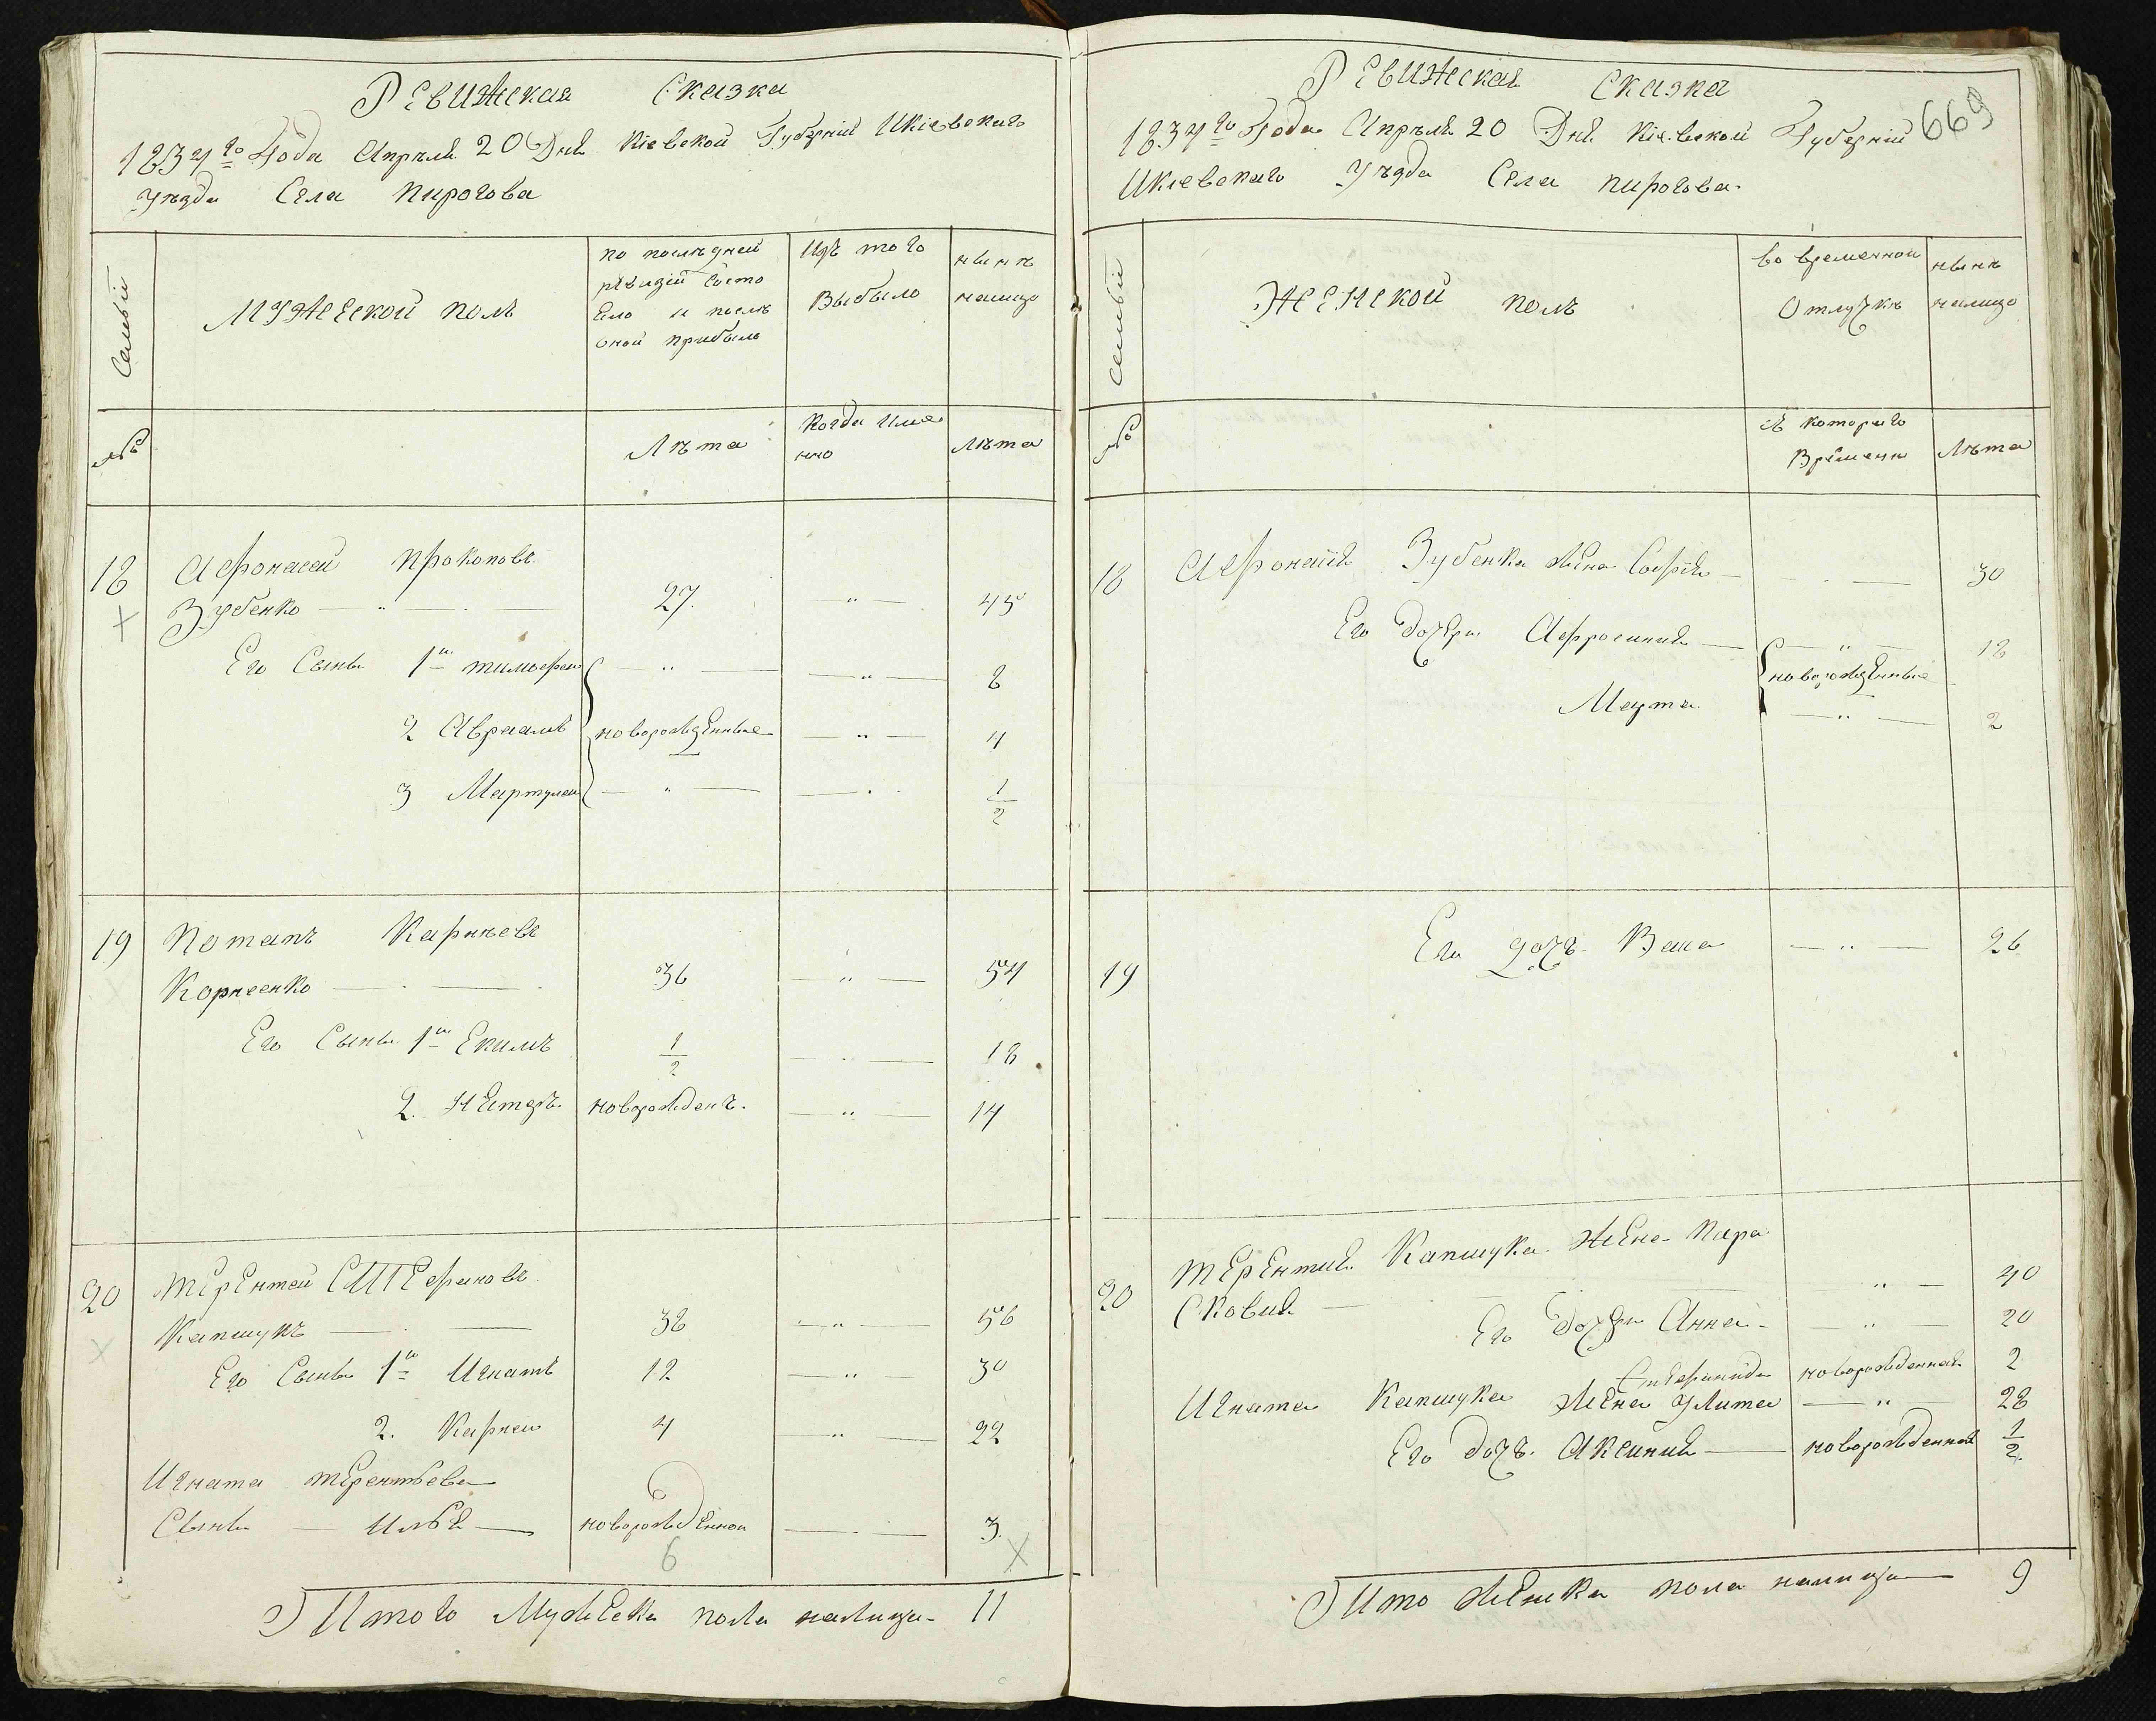 Ревижская Сказка
1834го Года Апреля 20 Дня Кіевской Губерніи Икіевскаго
Уезда Села Пирогова
Семьи
Мужеской полъ
по последней
ревизіи состо
яло и после
оной прибыло
Изъ того
Выбыло
ныне
налицо
№
Лета
Когда Име
нно
Лета
18 Афонасей Прокоповъ
Зубенко — " — 27. — " — 45
Его Сынъ 1й Тимофеи — " — — " — 8
2 Авраамъ новорожденные — " — 4
3 Мартынъ — " — — " 1/2
19 Потапъ Карнеевъ
Корнеенко — 36 — " — 54
Его Сынъ 1й Екимъ 1/2 — 18
2. Нестеръ новорожденъ. — " — 14
20 Терентей Стефановъ
Капшукъ — 38 — " — 56
Его Сынъ 1й Игнатъ 12 — " — 30
2. Карнеи 4 — " — 22
Игната Терентьева
Сынъ — Илья — новорожденнои — 3.
6
Итого Мужеска пола налицо 11
669
Ревижская Сказка
1834го Года Апреля 20 Дня Кіевской Губерніи
Икіевскаго Уезда Села Пирогова.
Семьи
Женской полъ
Во временной
Отлучке
ныне
налицо
№
Съ котораго
Времени
Лета
18 Афонасія Зубенка жена Софія — 30
Его дочери Афросинія — " — 18
новорожденные
Марта — " — 2
19 Его дочь Васа — " — 26
20 Терентия Капшука жена Пара
Сковия — " — 40
Его дочери Анна — " — 20
Стефанида новорожденная 2
Игната Капшука Жена Улита — " 28
Его дочь Аксиния — новорожденная 1/2
Ито женска пола налицо 9